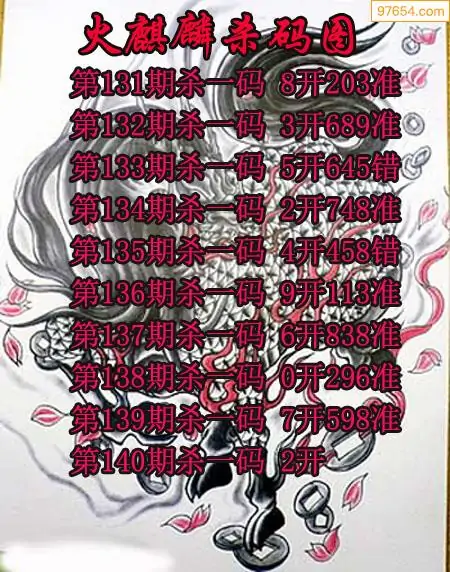 97654.com
火麒麟杀码图
第131期杀一码 8开203准
第132期杀一码 3开689准
第133期杀一码 5开645错
第134期杀一码 2开748准
第135期杀一码 4开458错
第136期杀一码 9开113准
第137期杀一码 6开838准
第138期杀一码 0开296准
第139期杀一码 7开598准
第140期杀一码 2开